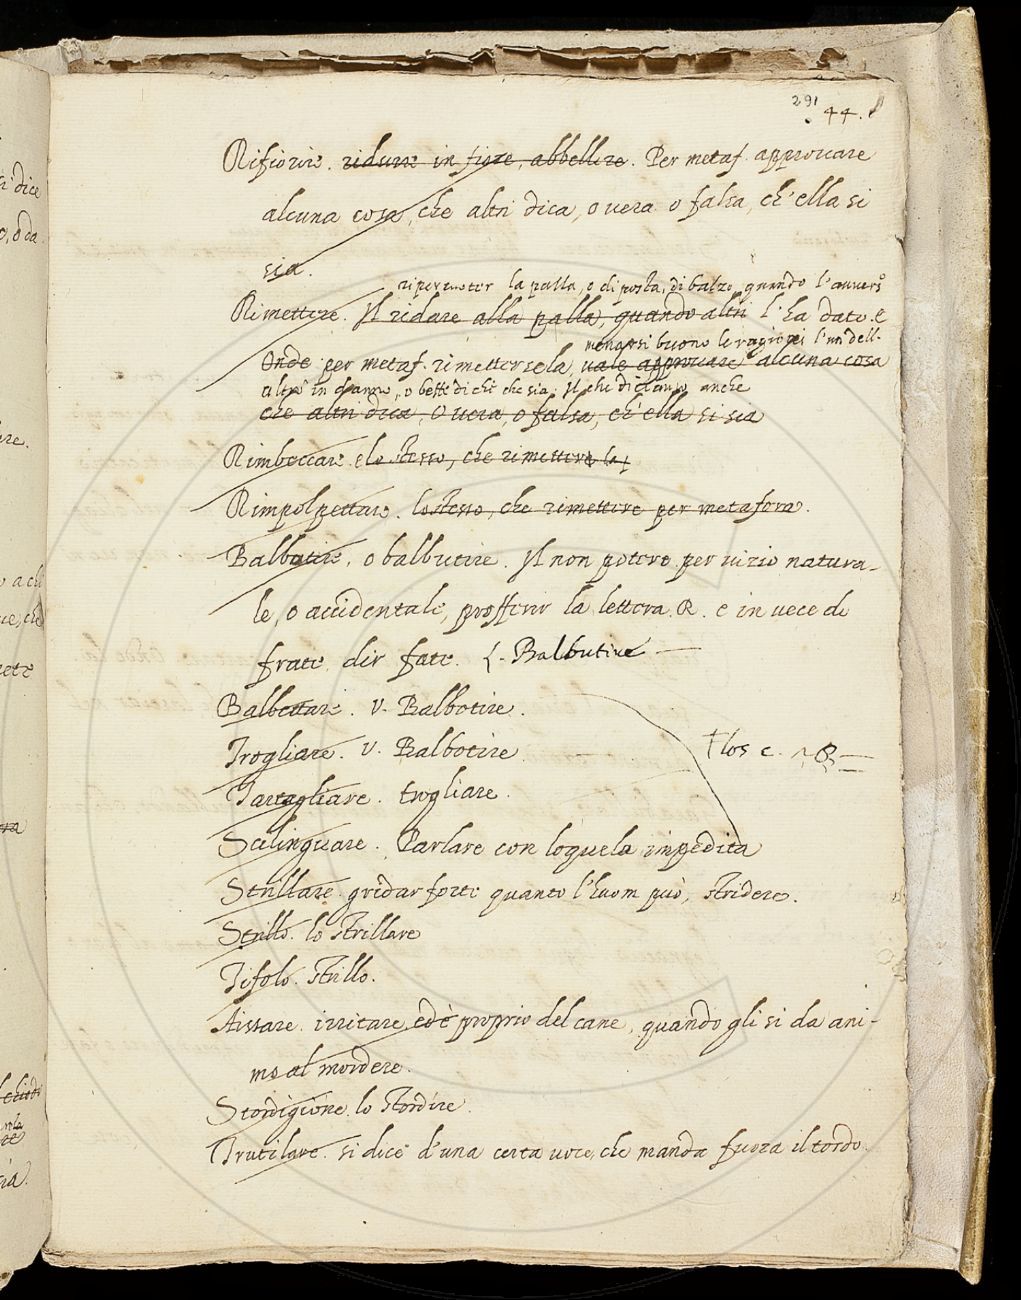 291
44.
Rifiorire. ridurre in fiore, abbellire. Per metaf. approuare
alcuna cosa, che altri dica, o uera o falsa, ch'ella si
sia.
ripercuoter la palla, o di posta, o di balzo, quando l'auuers.o
Rimettere. Il ridare alla palla, quando altri l'ha dato. E
menarsi buone le ragioni l'un dell-
Onde per metaf. rimettersela, uale approuare alcuna cosa
altro in danno, o beffe di chi che sia. Il chi diciamo anche
che altri dica, o uera, o falsa, ch'ella si sia
Rimbeccare. è lo stesso, che rimettere la
Rimpolpettare. lo stesso, che rimettere per metafora.
Balbotire, o balbutire. Il non potere per uizio natura-
le, o accidentale, profferir la lettera R. e in uece di
frate dir fate. Balbutire
Balbettare. V. Balbotire.
Trogliare. V. Balbotire
Flos c.
Tartagliare. trogliare.
Scilinguare. Parlare con loquela impedita
Strillare. gridar forte quanto l'huom può, stridere.
Strillo. lo strillare
Zifolo. strillo.
Aissare. irritare, ed è proprio del cane, quando gli si da ani-
mo al mordere.
Stordigione. lo stordire.
Trutilare. si dice d'una certa uoce, che manda fuora il tordo.
fi dice